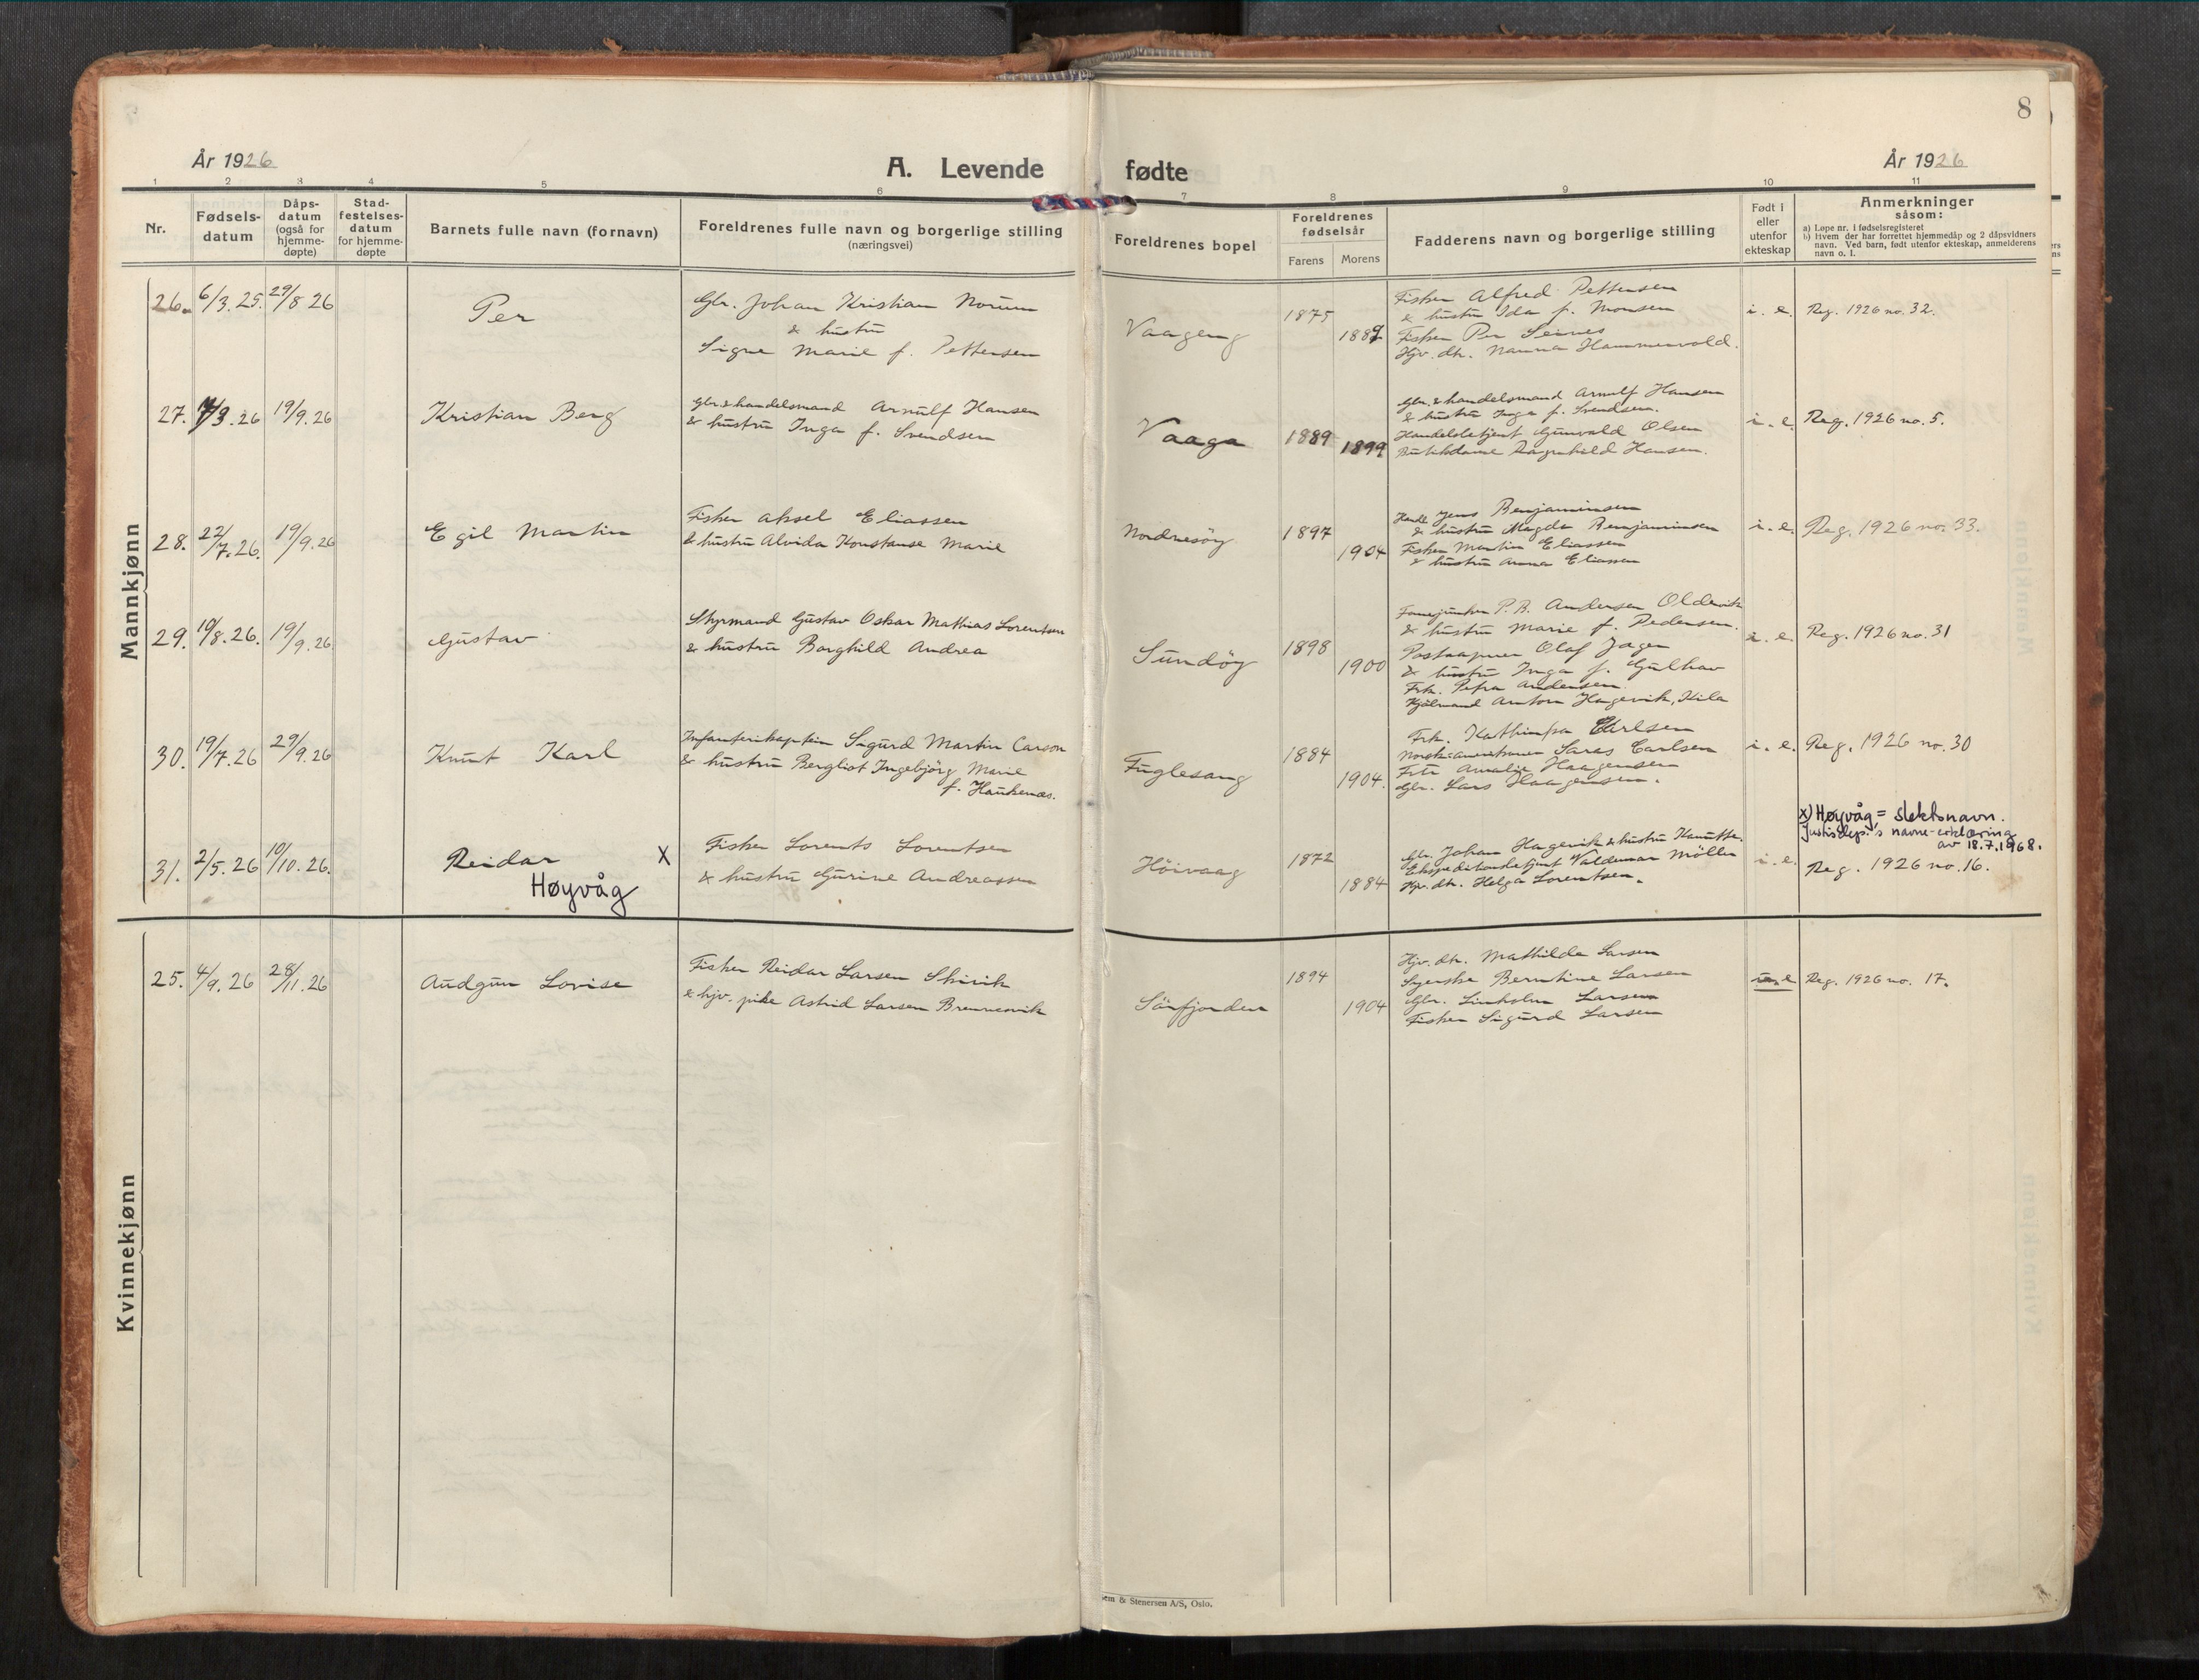 8
År 1926
A. Levende fødte
År 1926
1 2 3 4 5 6 7 8 9 10 11
Nr.
Fødsels-
datum
Dåps-
datum
(også for
hjemme-
døpte)
Stad-
festelses-
datum
for hjemme-
døpte
Barnets fulle navn (fornavn)
Foreldrenes fulle navn og borgerlige stilling
(næringsvei)
Foreldrenes bopel
Foreldrenes
fødselsår
Farens Morens
Fadderens navn og borgerlige stilling
Født i
eller
utenfor
ekteskap
Anmerkninger
såsom:
a) Løpe nr. i fødselsregisteret
b) Hvem der har forrettet hjemmedåp og 2 dåpsvidners
navn. Ved barn, født utenfor ekteskap, anmelderens
navn o. l.
Mannkjønn
26. 6/3.25. 29/8 26
Per
Gbr. Johan Kristian Norum
& hustru
Signe Marie f. Pettersen
Vaageng
1875
1889
Fisker Alfred Pettersen
& hustru Ida f. Monsen
Fisker Per Seines
Hjv. dtr. Nanna Hammervold.
i. e.
Reg. 1926 no. 32.
27. 7/3.26 19/9.26
Kristian Berg
Gbr. & handelsmand Arnulf Hansen
& hustru Inga f. Svendsen
Vaaga
1889
1899
Gbr. & handelsmand Arnulf Hansen
& hustru Inga f. Svendsen.
Handelsbetjent Gunvald Olsen
Butikdame Ragnhild Hansen.
i. e.
Reg. 1926 no. 5.
28. 22/7.26. 19/9.26
Egil Martin
Fisker Aksel Eliassen
& hustru Alvida Konstanse Marie
Nordnesöy
1897
1904
Jens Benjaminsen
& hustru Magda Benjaminsen
Fisker Martin Eliassen
& hustru Anna Eliassen
i. e.
Reg. 1926 no. 33.
29. 19/8.26. 19/9.26
Gustav
Styrmand Gustav Oskar Mathias Lorentsen
& hustru Borghild Andrea
Sundöy
1898
1900
Fanejunker P. B. Andersen Oldervik
& hustru Marie f. Pedersen.
Postaapner Olaf Jager
& hustru Inga f. Gulhav
Frk. Petra Andersen.
Anton Hagevik, Kila
i. e.
Reg. 1926 no. 31
30. 19/7.26 29/9.26
Knut Karl
Infanterikaptein Sigurd Martin Carson
& hustru Bergliot Ingebjörg Marie
f. Haukenæs.
Fuglesang
1884
1904.
Frk. Kathinka Carlsen
Norsk-amerikaner Saras Carlsen
Frk Amalie Haagensen
Gbr. Lars Haagensen.
i. e.
Reg. 1926 no. 30
31. 2/5.26 10/10.26.
Reidar x
Høyvåg
Fisker Lorents Lorentsen
& hustru Gurine Andreassen
Höivaag
1872
1884
Gbr. Johan Hagevik & hustru Hanette.
Ekspeditionsbetjent Valdemar Möller
Hjv. dtr. Helga Lorentsen.
i. e.
x) Høyvåg = slektsnavn.
Justisdep.'s navne-erklæring
av 18.7.1968.
Reg. 1926 no. 16.
Kvinnekjønn
25. 4/9.26 28/11.26
Audgun Lovise
Fisker Reidar Larsen Skivik
& hjv. pike Astrid Larsen Brennesvik
Sörfjorden
1894
1904
Hjv. dtr. Mathilde Larsen
Syerske Berntine Larsen
Gbr. Larsen
Fisker Sigurd Larsen
u. e.
Reg. 1926 no. 17.
& Stenersen A/S, Oslo.